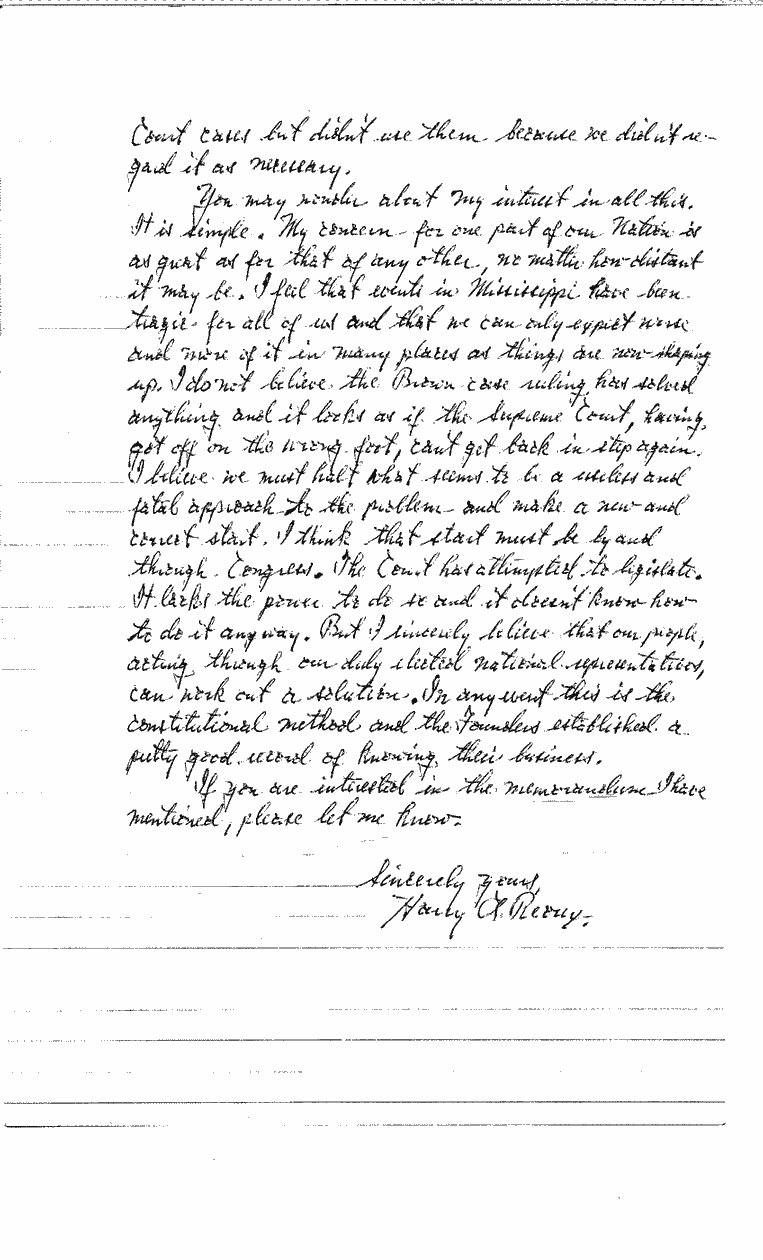 Court cases but didn't use them because we didn't re-
gard it as necessary.
You may wonder about my interest in all this.
It is simple. My concern for one part of our Nation is
as great as for that of any other, no matter how distant
it may be. I feel that events in Mississippi have been
tragic for all of us and that we can only expect worse
and more of it in many places as things are now shaping
up. I do not believe the Brown case ruling has solved
anything and it looks as if the Supreme Court, having
got off on the wrong foot, can't get back in step again.
I believe we must halt what seems to be a useless and
fatal approach to the problem and make a new and
correct start. I think that start must be by and
through Congress. The Court has attempted to legislate.
It lacks the power to do so and it doesn't know how
to do it anyway. But I sincerely believe that our people,
acting through our duly elected national representatives,
can work out a solution. In any event this is the
constitutional method and the Founders established a
pretty good record of knowing their business.
If you are interested in the memorandum I have
mentioned, please let me know.
Sincerely yours,
Harry